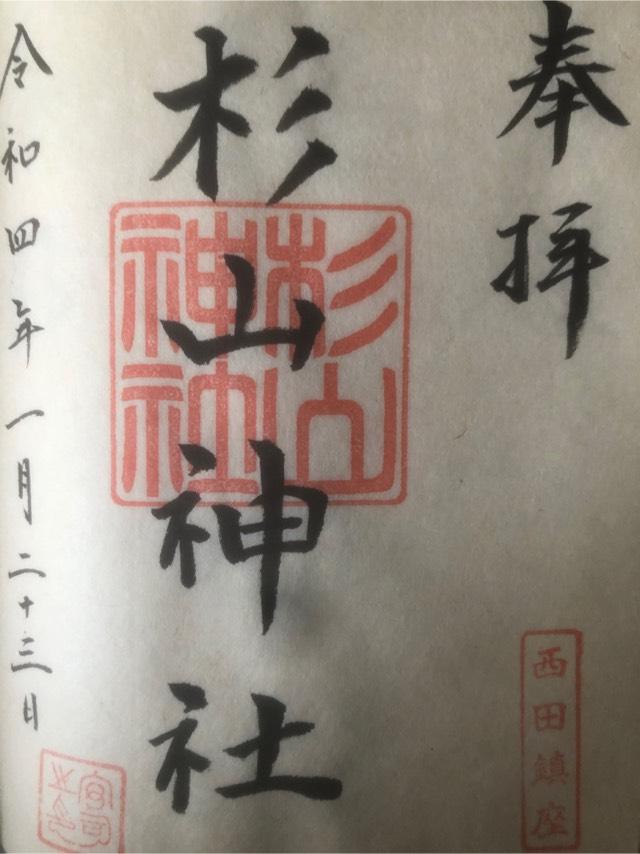 奉拝
西田鎮座
杉山神社
杉山神社
令和四年一月二十三日
宮司之印